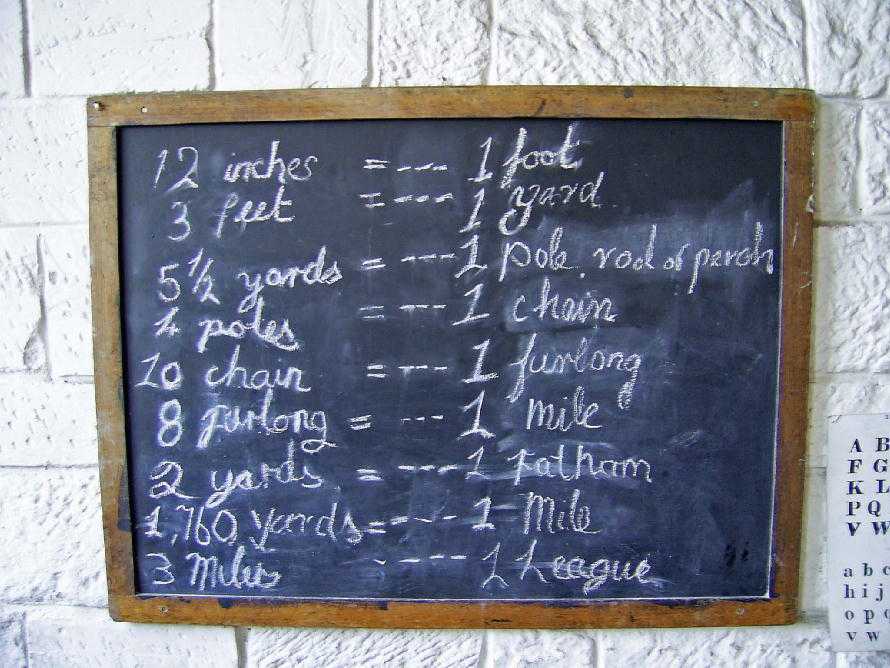 12 inches = --- 1 foot
3 feet = --- 1 yard
5½ yards = --- 1 pole. rod or perch
4 poles = --- 1 chain
10 chain = --- 1 furlong
8 furlong = --- 1 mile
2 yards = ---- 1 Fatham
1,760 yards = --- 1 Mile
3 Miles - ---- 1 League
A B
F G
K L
P Q
V W
a b c
h i j
o p q
v w